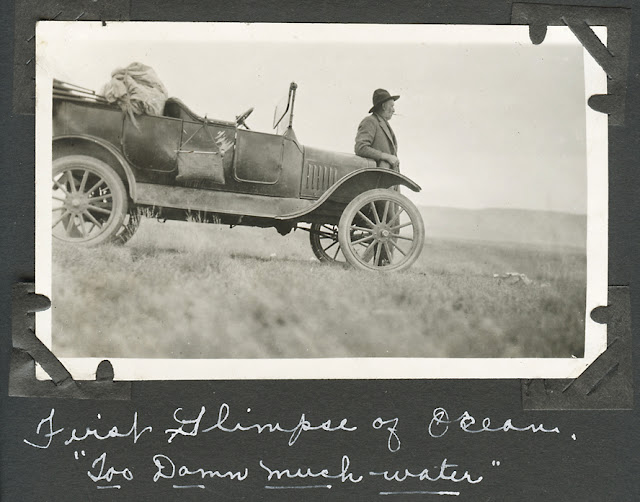 First Glimpse of Ocean.
"Too Damn much water"